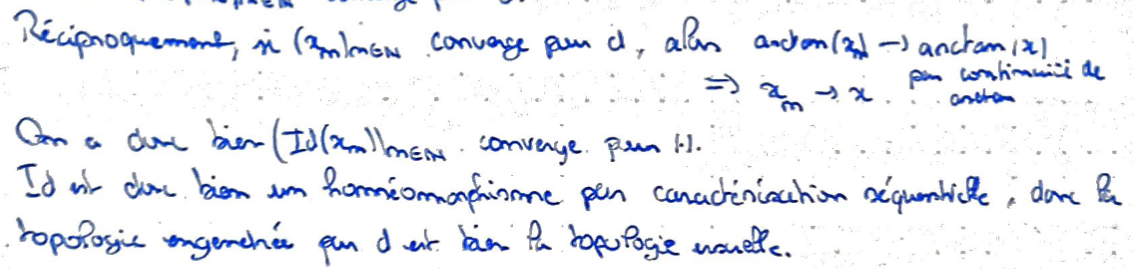 Réciproquement, si (x_n)_{n∈ℕ} converge pour d, alors arctan(x_n) → arctan(x)
⇒ x_n → x. par continuité de
arctan
On a donc bien (Id(x_n))_{n∈ℕ} converge pour |.|.
Id est donc bien un homéomorphisme par caractérisation séquentielle, donc la
topologie engendrée par d est bien la topologie usuelle.